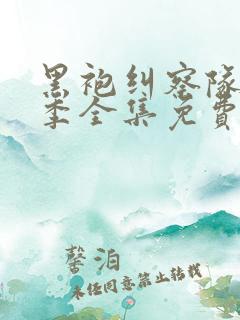 黑袍纠察队
季全集免费
馨泊
未经同意禁止转载